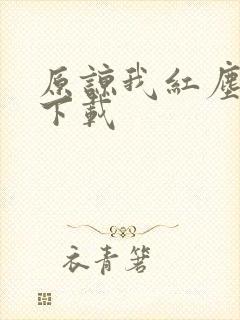 原諒我紅塵
下載
衣青箬